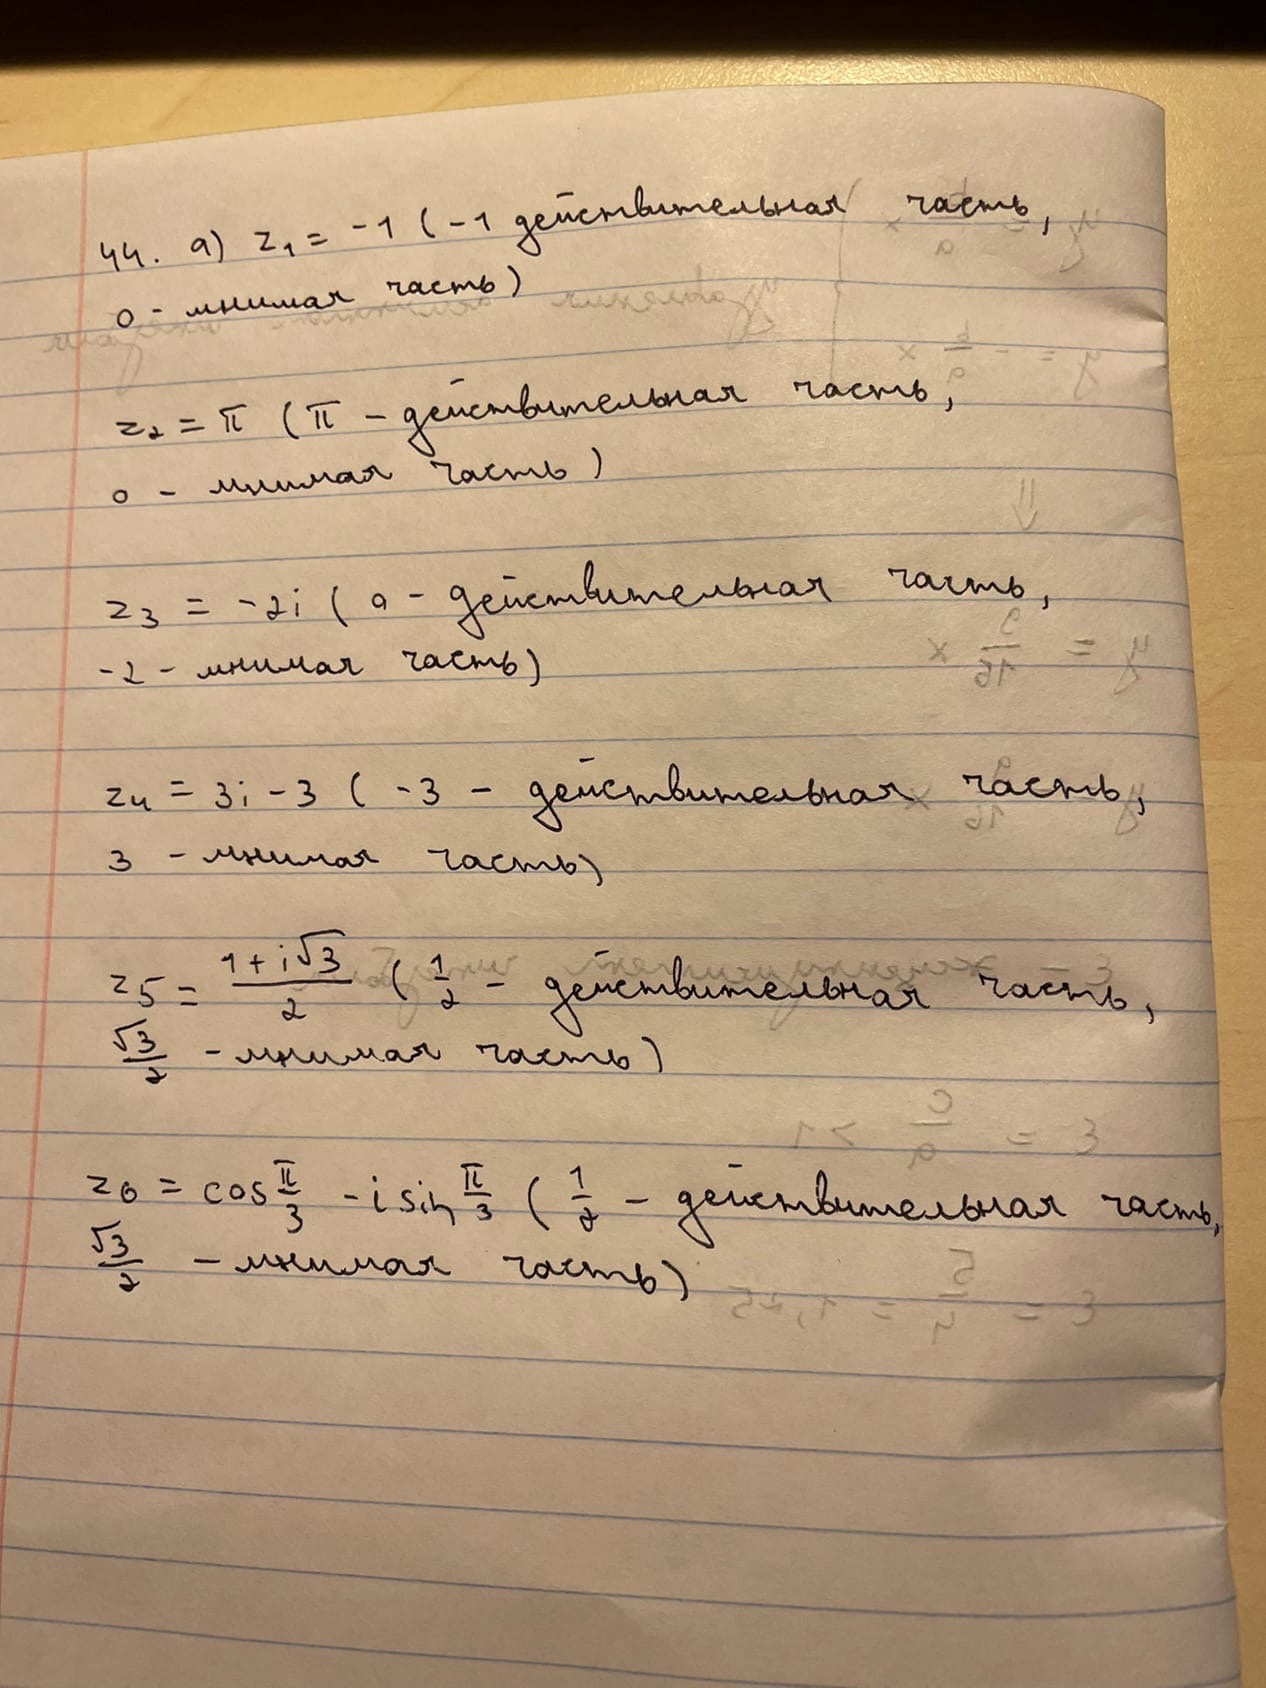 44. а) z₁ = -1 ( -1 действительная часть,
0 - мнимая часть)
z₂ = π (π - действительная часть,
0 - мнимая часть)
z₃ = -2i ( 0 - действительная часть,
-2 - мнимая часть)
z₄ = 3i - 3 ( -3 - действительная часть,
3 - мнимая часть)
z₅ = (1+i√3)/2 ( 1/2 - действительная часть,
√3/2 - мнимая часть)
z₆ = cos π/3 - i sin π/3 ( 1/2 - действительная часть,
√3/2 - мнимая часть)